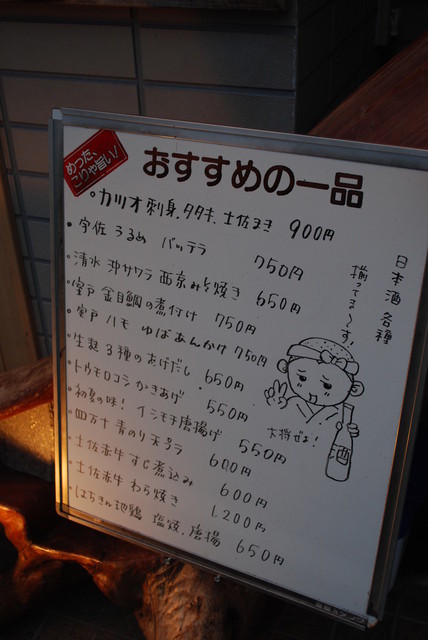 めった、
こりゃ旨い!
おすすめの一品
・カツオ 刺身.タタキ.土佐まき 900円
・宇佐 うるめ バッテラ 750円
・清水 沖サワラ 西京みそ焼き 650円
・室戸 金目鯛の煮付け 750円
・室戸 ハモ ゆばあんかけ 750円
・生麩3種のあげだし 650円
・トウモロコシ かきあげ 550円
・初夏の味! イシモチ唐揚げ 550円
・四万十 青のり天プラ 600円
・土佐赤牛 すじ煮込み 600円
・土佐赤牛 わら焼き 1,200円
・はちきん地鶏 塩焼.唐揚 650円
日本酒 各種
揃ってる〜す!
大将ぜよ!
酒